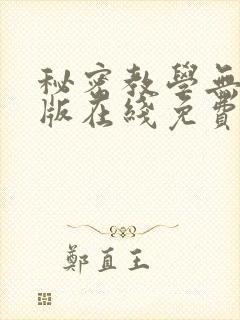 秘密教學無
版在綫免費
鄭直王